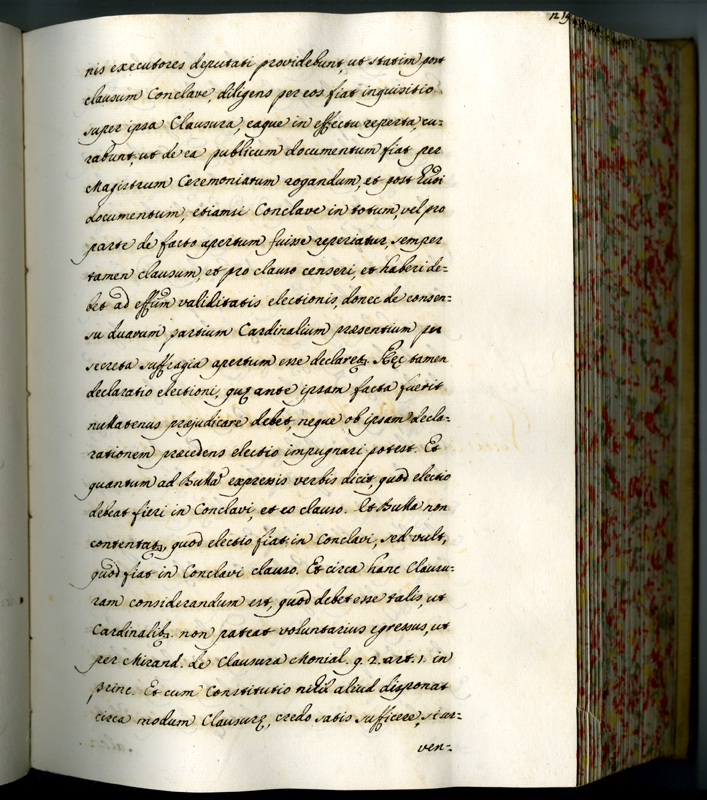 nis executores deputati providebunt, ut statim post
clausum Conclave, diligens per eos fiat inquisitio
super ipsa Clausura, eaque in effectu reperta, cu-
rabunt, ut de ea publicum documentum fiat per
Magistrum Ceremoniarum rogandum, et post
documentum, etiamsi Conclave in totum, vel pro
parte de facto apertum fuisse reperiatur, semper
tamen clausum et pro clauso censeri, et haberi de-
bet ad effũm validitatis electionis, donec de consen-
su duarum partium Cardinalium præsentium per
secreta suffragia apertum esse declaret. Hęc tamen
declaratio electioni, quę ante ipsam facta fuerit
nullatenus præjudicare debet, neque ob ipsam decla-
rationem præcedens electio impugnari potest. Et
quantum ad Bullã expressis verbis dicit, quod electio
debeat fieri in Conclavi, et eo clauso. Et Bulla non
contentat, quod electio fiat in Conclavi, sed vult,
quod fiat in Conclavi clauso. Et circa hanc Clausu-
ram considerandum est, quod debet esse talis, ut
Cardinalib. non pateat voluntarius egressus, ut
per Mirand. de Clausura Monial. q. 2. art. 1. in
princ. Et cum Constitutio nihil aliud disponat
circa modum Clausurę, credo satis sufficere, si ar-
ven-